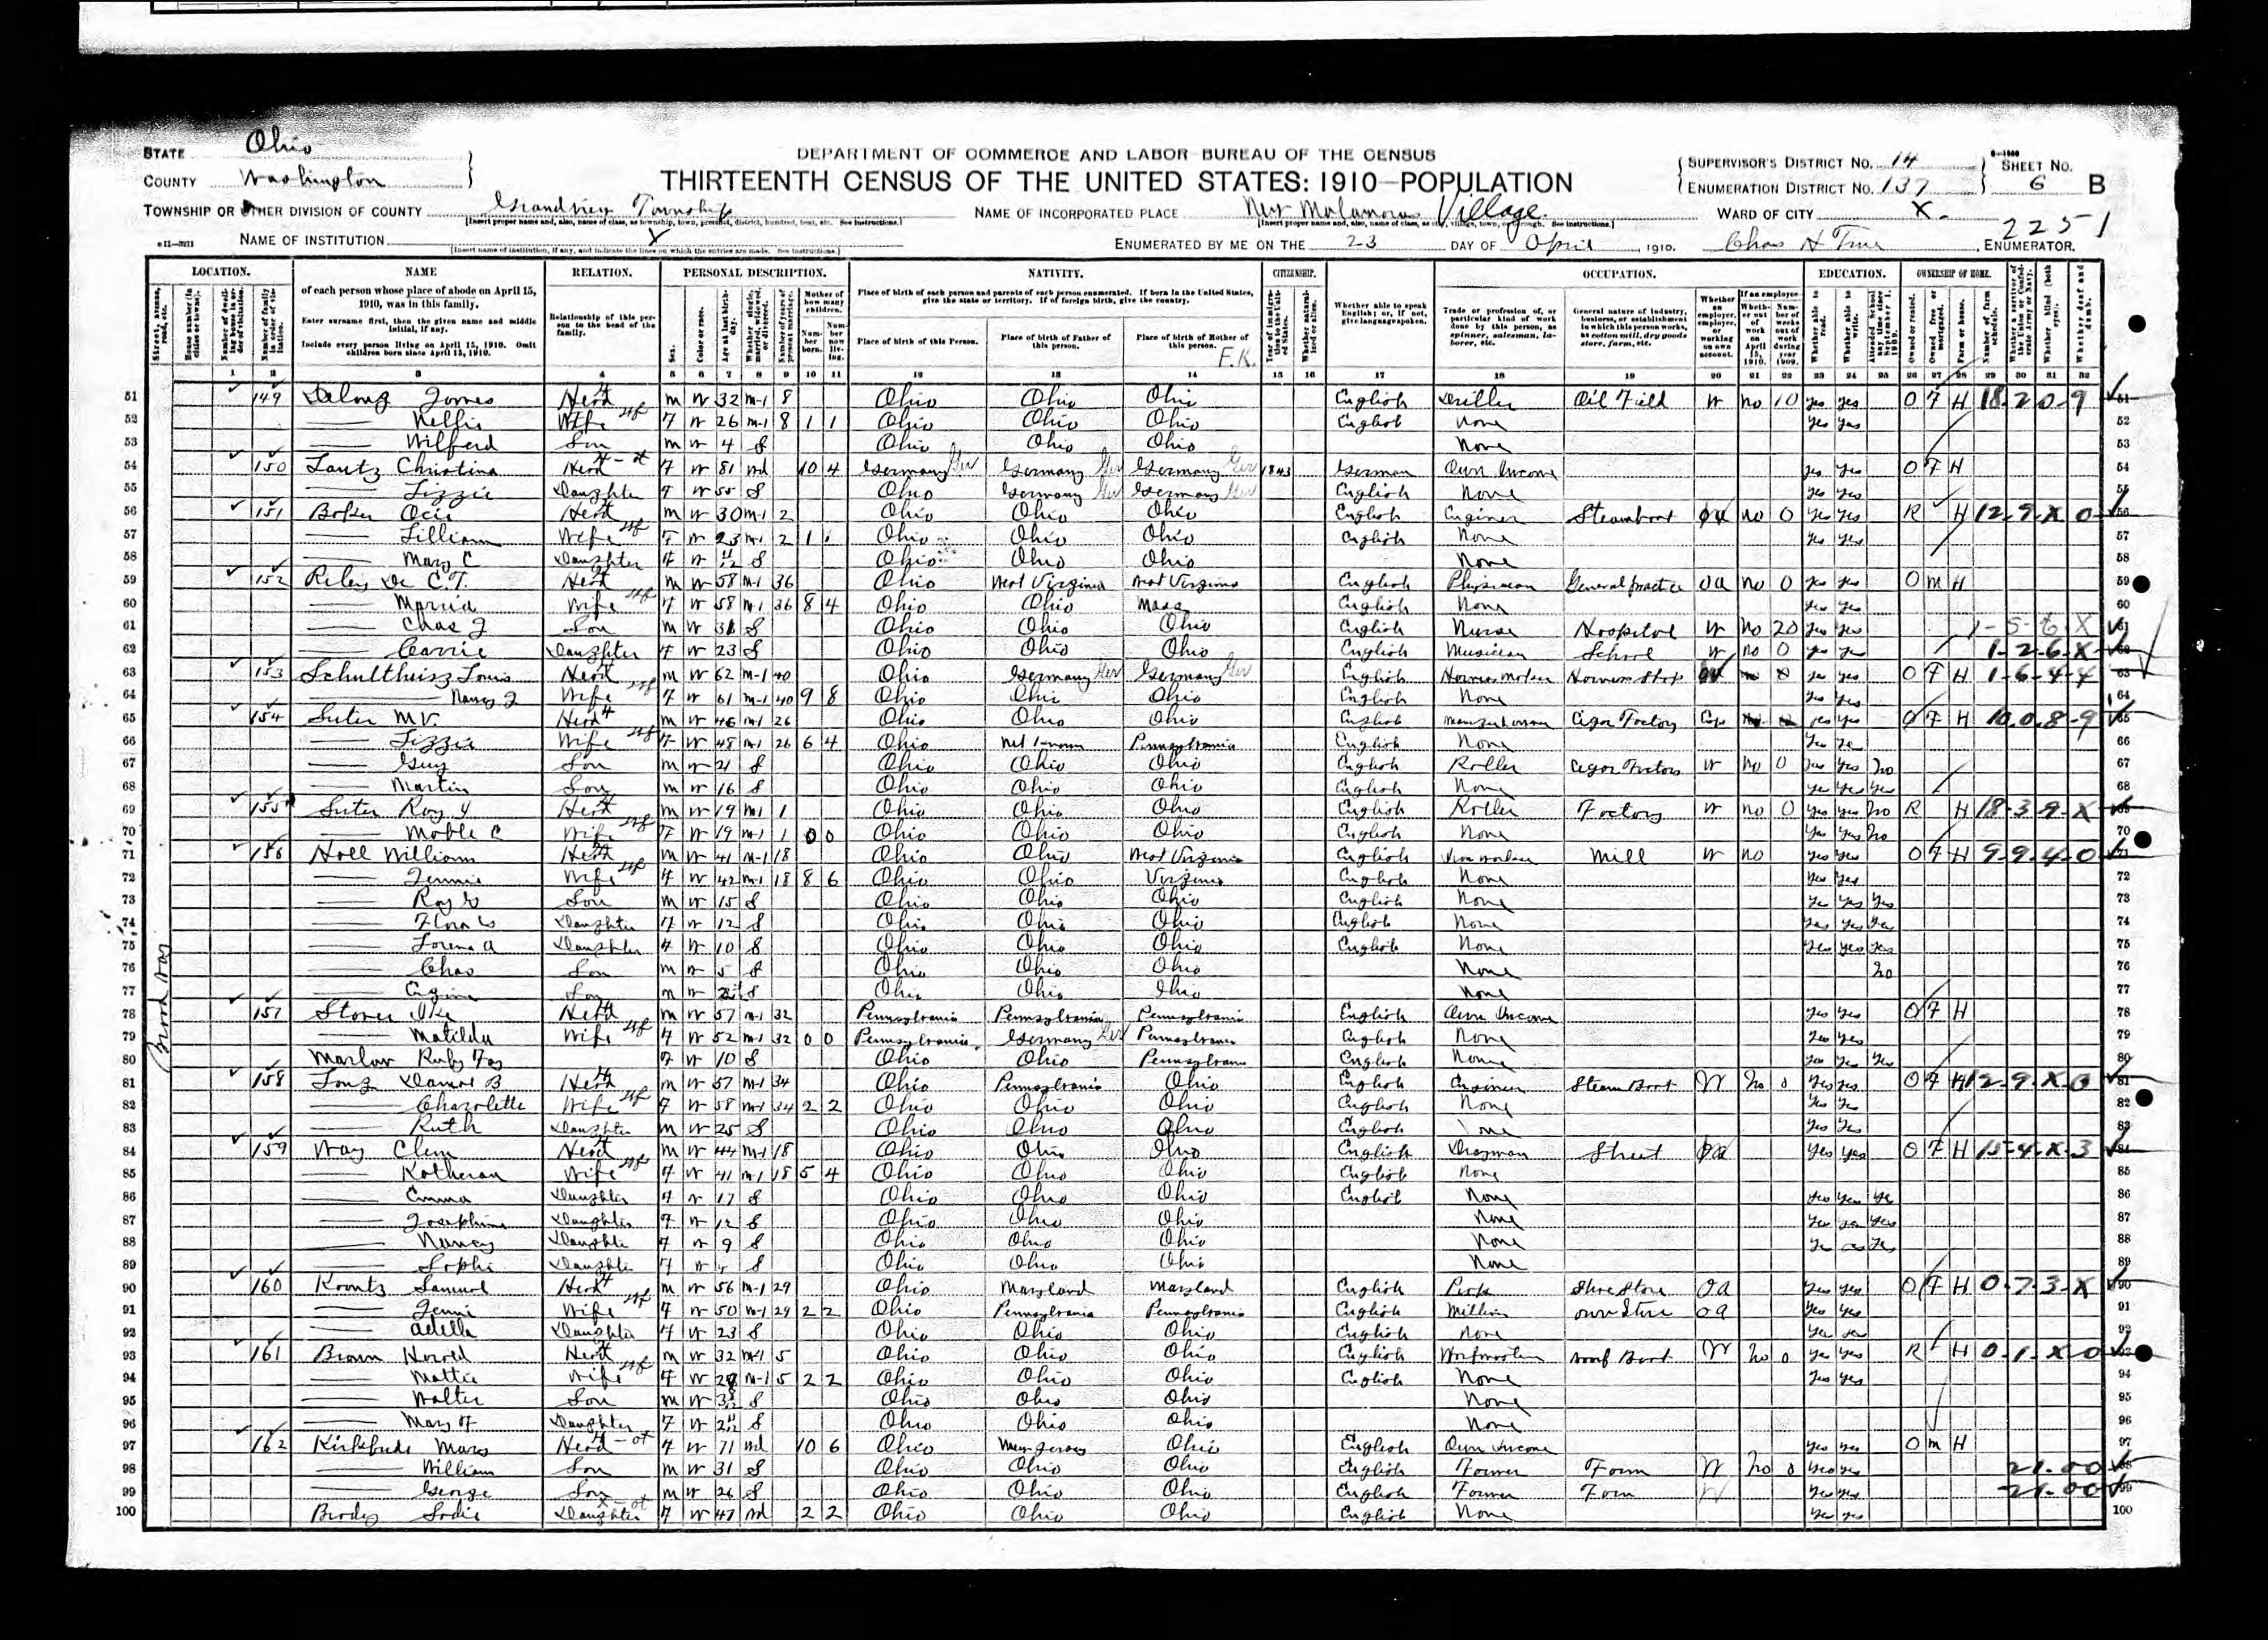 STATE Ohio
COUNTY Washington
DEPARTMENT OF COMMERCE AND LABOR-BUREAU OF THE CENSUS
THIRTEENTH CENSUS OF THE UNITED STATES: 1910-POPULATION
SUPERVISOR'S DISTRICT No. 14
ENUMERATION DISTRICT No. 137
SHEET No. 6 B
TOWNSHIP OR OTHER DIVISION OF COUNTY Grandview Township
NAME OF INCORPORATED PLACE New Matamoras Village
WARD OF CITY X
2251
NAME OF INSTITUTION X
ENUMERATED BY ME ON THE 23 DAY OF April, 1910. Chas H True, ENUMERATOR.
LOCATION. NAME RELATION. PERSONAL DESCRIPTION. NATIVITY. CITIZENSHIP. OCCUPATION. EDUCATION. OWNERSHIP OF HOME.
of each person whose place of abode on April 15, 1910, was in this family.
Enter surname first, then the given name and middle initial, if any.
Include every person living on April 15, 1910. Omit children born since April 15, 1910.
Relationship of this person to the head of the family.
Place of birth of each person and parents of each person enumerated. If born in the United States, give the state or territory. If of foreign birth, give the country.
Place of birth of this Person. Place of birth of Father of this person. Place of birth of Mother of this person.
Whether able to speak English; or, if not, give language spoken.
Trade or profession of, or particular kind of work done by this person, as spinner, salesman, laborer, etc.
General nature of industry, business, or establishment in which this person works, as cotton mill, dry goods store, farm, etc.
51 149 Delong James Head m W 32 m-1 8 Ohio Ohio Ohio English Driller Oil Field W no 10 yes yes O F H 18-2-0-9
52 Nellie Wife F W 26 m-1 8 1 1 Ohio Ohio Ohio English None yes yes
53 Wilferd Son m W 4 S Ohio Ohio Ohio None
54 150 Lautz Christina Head F W 81 wd 10 4 Germany Germany Germany 1843 German Own Income yes yes O F H
55 Lizzie Daughter F W 55 S Ohio Germany Germany English None yes yes
56 151 Ocie Head m W 30 m-1 2 Ohio Ohio Ohio English Engineer Steamboat no 0 yes yes R H 12-9-X-0
57 Lilliam Wife F W 23 m-1 2 1 1 Ohio Ohio Ohio English None yes yes
58 Mary C Daughter F W 11/12 S Ohio Ohio Ohio None
59 152 Riley Dr C.T. Head m W 58 m-1 36 Ohio West Virginia West Virginia English Physician General practice OA no 0 yes yes O m H
60 Wife F W 58 m-1 36 8 4 Ohio Ohio Mass English None yes yes
61 Chas J Son m W 31 S Ohio Ohio Ohio English Nurse Hospital W no 20 yes yes 1-5-6-X
62 Carrie Daughter F W 23 S Ohio Ohio Ohio English Musician School W no 0 yes yes 1-2-6-X
63 153 Schultheisz Louis Head m W 62 m-1 40 Ohio Germany Germany English Harness Maker Harness Shop yes yes O F H 1-6-4-4
64 Nancy J Wife F W 61 m-1 40 9 8 Ohio Ohio Ohio English None yes yes
65 154 Suter M V. Head m W 46 m-1 26 Ohio Ohio Ohio English Cigar Factory yes yes O F H 10-0-8-9
66 Lizzie Wife F W 48 m-1 26 6 4 Ohio not known Pennsylvania English None yes yes
67 Guy Son m W 21 S Ohio Ohio Ohio English Roller Cigar Factory W no 0 yes yes no
68 Martin Son m W 16 S Ohio Ohio Ohio English None yes yes yes
69 155 Suter Roy Y Head m W 19 m-1 1 Ohio Ohio Ohio English Roller Factory W no 0 yes yes no R H 18-3-9-X
70 Mable C Wife F W 19 m-1 1 0 0 Ohio Ohio Ohio English None yes yes no
71 156 Hall William Head m W 41 m-1 18 Ohio Ohio West Virginia English Iron worker Mill W no yes yes O F H 9-9-4-0
72 Jennie Wife F W 42 m-1 18 8 6 Ohio Ohio Virginia English None yes yes
73 Ray Son m W 15 S Ohio Ohio Ohio English None yes yes yes
74 Flora Daughter F W 12 S Ohio Ohio Ohio English None yes yes yes
75 Lorena A Daughter F W 10 S Ohio Ohio Ohio English None yes yes yes
76 Chas Son m W 5 S Ohio Ohio Ohio None no
77 Son m W S Ohio Ohio Ohio None
Broad Way
78 157 Stover Ike Head m W 57 m-1 32 Pennsylvania Pennsylvania Pennsylvania English Own Income yes yes O F H
79 Matilda Wife F W 52 m-1 32 0 0 Pennsylvania Germany Pennsylvania English None yes yes
80 Marlow Ruby Fay F W 10 S Ohio Ohio Pennsylvania English None yes yes yes
81 158 Long Daniel B Head m W 57 m-1 34 Ohio Pennsylvania Ohio English Engineer Steam Boat W no 0 yes yes O F H 12-9-X-0
82 Charolette Wife F W 58 m-1 34 2 2 Ohio Ohio Ohio English None yes yes
83 Ruth Daughter m W 25 S Ohio Ohio Ohio English None yes yes
84 159 Way Clem Head m W 44 m-1 18 Ohio Ohio Ohio English Drayman Street OA yes yes O F H 15-4-X-3
85 Katheran Wife F W 41 m-1 18 5 4 Ohio Ohio Ohio English None
86 Emma Daughter F W 17 S Ohio Ohio Ohio English None yes yes yes
87 Josephine Daughter F W 12 S Ohio Ohio Ohio None yes yes yes
88 Nancy Daughter F W 9 S Ohio Ohio Ohio None yes yes yes
89 Sophi Daughter F W S Ohio Ohio Ohio None
90 160 Koontz Samuel Head m W 56 m-1 29 Ohio Maryland Maryland English Shoe Store OA yes yes O F H 0-7-3-X
91 Jenni Wife F W 50 m-1 29 2 2 Ohio Pennsylvania Pennsylvania English own Store OA yes yes
92 Adella Daughter F W 23 S Ohio Ohio Ohio English None yes yes
93 161 Brown Harold Head m W 32 m-1 5 Ohio Ohio Ohio English Wharfmaster Wharf Boat W no 0 yes yes R H 0-1-X-0
94 Mattie Wife F W m-1 5 2 2 Ohio Ohio Ohio English None yes yes
95 Walter Son m W S Ohio Ohio Ohio None
96 Mary Daughter F W S Ohio Ohio Ohio None
97 162 Kirkbride Mary Head F W 71 wd 10 6 Ohio New Jersey Ohio English Own Income yes yes O m H
98 William Son m W 31 S Ohio Ohio Ohio English Farmer Farm W no 0 yes yes 21-00
99 George Son m W 26 S Ohio Ohio Ohio English Farmer Farm W yes yes 21-00
100 Sadie Daughter F W 47 wd 2 2 Ohio Ohio Ohio English None yes yes